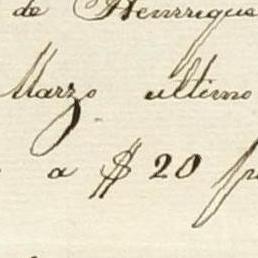 de Henrrique
Marzo ultimo
a $ 20